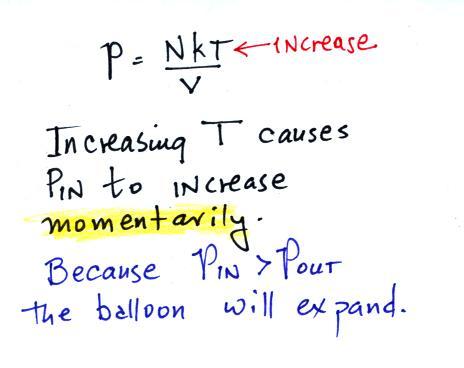 P = NkT ← INcrease
V
Increasing T causes
PIN to INcrease
momentarily.
Because PIN > POUT
the balloon will expand.